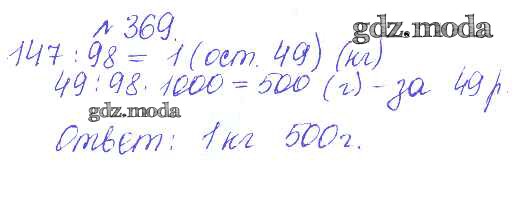 № 369.
gdz.moda
147 : 98 = 1 (ост. 49) (кг)
49 : 98 · 1000 = 500 (г) - за 49 р.
gdz.moda
Ответ: 1 кг 500 г.